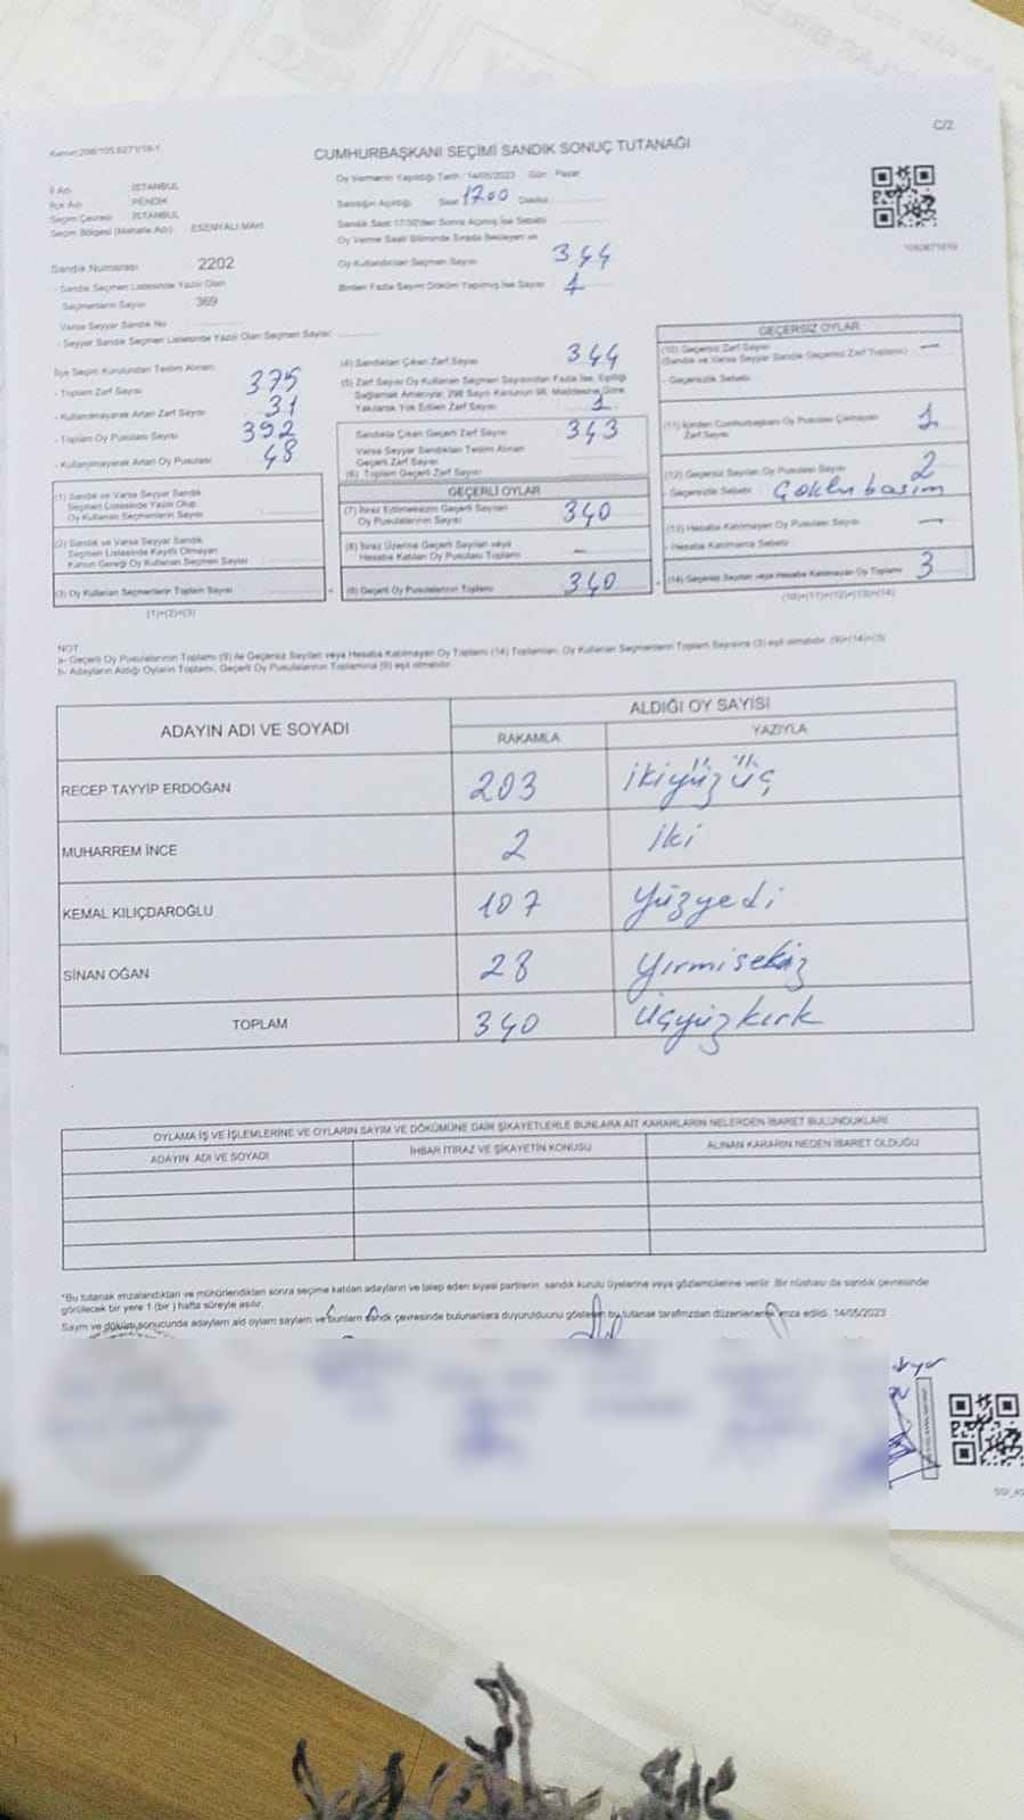 C/2
CUMHURBAŞKANI SEÇİMİ SANDIK SONUÇ TUTANAĞI
İl Adı İSTANBUL
İlçe Adı PENDİK
Seçim Çevresi İSTANBUL
Seçim Bölgesi (Mahalle Adı) ESENYALI MAH
Sandık Numarası 2202
- Sandık Seçmen Listesinde Yazılı Olan
Seçmenlerin Sayısı 369
Varsa Seyyar Sandık No
- Seyyar Sandık Seçmen Listesinde Yazılı Olan Seçmen Sayısı
Oy Vermenin Yapıldığı Tarih : 14/05/2023 Gün : Pazar
Sandığın Açıldığı Saat 17.00 Dakika
Sandık Saat 17:00'den Sonra Açılmış İse Sebebi
Oy Verme Saati Bitiminde Sırada Bekleyen ve
Oy Kullandırılan Seçmen Sayısı 344
Birden Fazla Sayım Döküm Yapılmış İse Sayısı 1
İlçe Seçim Kurulundan Teslim Alınan
- Toplam Zarf Sayısı 375
- Kullanılmayarak Artan Zarf Sayısı 31
- Toplam Oy Pusulası Sayısı 392
- Kullanılmayarak Artan Oy Pusulası 48
(1) Sandık ve Varsa Seyyar Sandık
Seçmen Listesinde Yazılı Olup
Oy Kullanan Seçmenlerin Sayısı
(2) Sandık ve Varsa Seyyar Sandık
Seçmen Listesinde Kayıtlı Olmayan
Kanun Gereği Oy Kullanan Seçmen Sayısı
(3) Oy Kullanan Seçmenlerin Toplam Sayısı
(1)+(2)=(3)
(4) Sandıktan Çıkan Zarf Sayısı 344
(5) Zarf Sayısı Oy Kullanan Seçmen Sayısından Fazla İse, Eşitliği
Sağlamak Amacıyla; 298 Sayılı Kanunun 98. Maddesine Göre
Yakılarak Yok Edilen Zarf Sayısı 1
Sandıkta Çıkan Geçerli Zarf Sayısı 343
Varsa Seyyar Sandıktan Teslim Alınan
Geçerli Zarf Sayısı
(6) Toplam Geçerli Zarf Sayısı
GEÇERLİ OYLAR
(7) İtiraz Edilmeksizin Geçerli Sayılan
Oy Pusulalarının Sayısı 340
(8) İtiraz Üzerine Geçerli Sayılan veya
Hesaba Katılan Oy Pusulası Toplamı -
(9) Geçerli Oy Pusulalarının Toplamı 340
GEÇERSİZ OYLAR
(10) Geçersiz Zarf Sayısı -
(Sandık ve Varsa Seyyar Sandık Geçersiz Zarf Toplamı)
- Geçersizlik Sebebi
(11) İçinden Cumhurbaşkanı Oy Pusulası Çıkmayan
Zarf Sayısı 1
(12) Geçersiz Sayılan Oy Pusulası Sayısı 2
- Geçersizlik Sebebi
(13) Hesaba Katılmayan Oy Pusulası Sayısı -
- Hesaba Katılmama Sebebi
(14) Geçersiz Sayılan veya Hesaba Katılmayan Oy Toplamı 3
(10)+(11)+(12)+(13)=(14)
NOT
a- Geçerli Oy Pusulalarının Toplamı (9) ile Geçersiz Sayılan veya Hesaba Katılmayan Oy Toplamı (14) Toplamları, Oy Kullanan Seçmenlerin Toplam Sayısına (3) eşit olmalıdır. (9)+(14)=(3)
b- Adayların Aldığı Oyların Toplamı, Geçerli Oy Pusulalarının Toplamına (9) eşit olmalıdır.
ADAYIN ADI VE SOYADI ALDIĞI OY SAYISI
RAKAMLA YAZIYLA
RECEP TAYYİP ERDOĞAN 203 ikiyüzüç
MUHARREM İNCE 2 iki
KEMAL KILIÇDAROĞLU 107 yüzyedi
SİNAN OĞAN 28 yirmisekiz
TOPLAM 340 üçyüzkırk
OYLAMA İŞ VE İŞLEMLERİNE VE OYLARIN SAYIM VE DÖKÜMÜNE DAİR ŞİKAYETLERLE BUNLARA AİT KARARLARIN NELERDEN İBARET BULUNDUKLARI
ADAYIN ADI VE SOYADI İHBAR İTİRAZ VE ŞİKAYETİN KONUSU ALINAN KARARIN NEDEN İBARET OLDUĞU
*Bu tutanak imzalandıktan ve mühürlendikten sonra seçime katılan adayların ve talep eden siyasi partilerin sandık kurulu üyelerine veya gözlemcilerine verilir. Bir nüshası da sandık çevresinde
görülecek bir yere 1 (bir ) hafta süreyle asılır.
Sayım ve döküm sonucunda adayların aldığı oyların sayıları ve bunların sandık çevresinde bulunanlara duyurulduğunu gösteren bu tutanak tarafımızdan düzenlenerek imza edildi. 14/05/2023